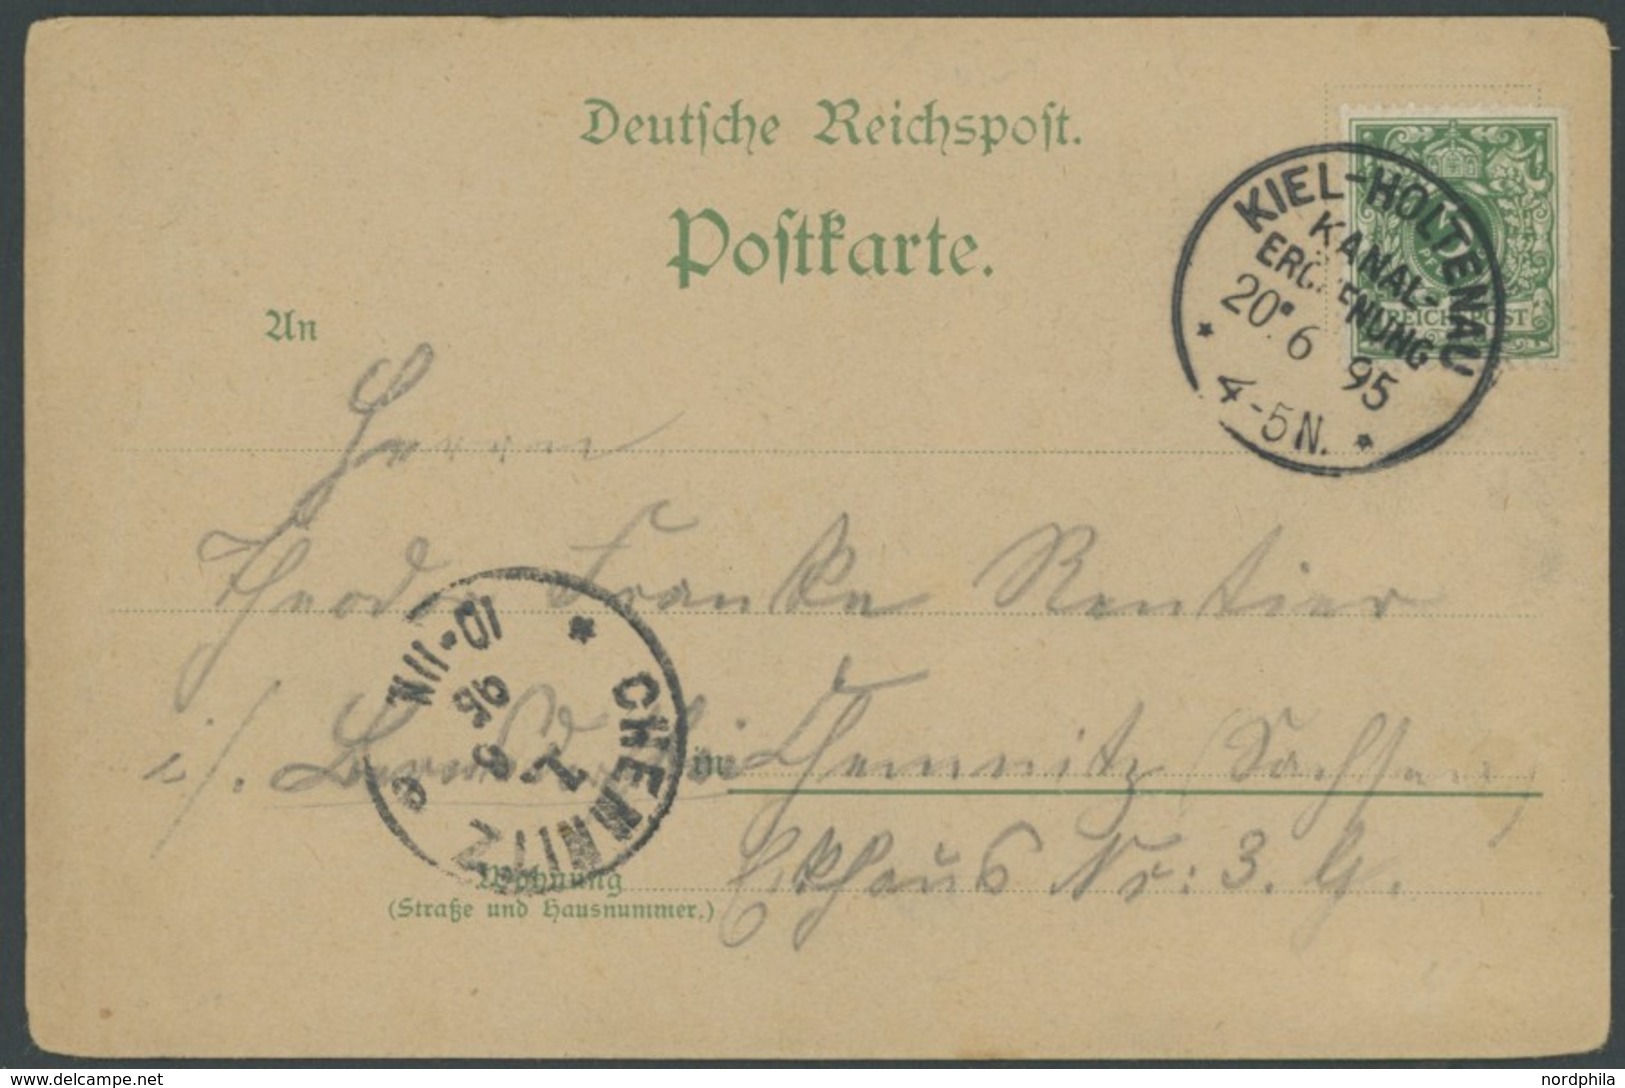 Deutsche Reichspost.
Postkarte.
KIEL-HOLTENAU
KANAL-
ERÖFFNUNG
20.6 95
4-5N.
REICHSPOST
An
Herrn
Theodor Franke Rentier
i/.
in Chemnitz / Sachsen
CHEMNITZ
10-11N
Wohnung
(Straße und Hausnummer.)
Eckhaus Nr: 3. G.
www.delcampe.net
nordphila